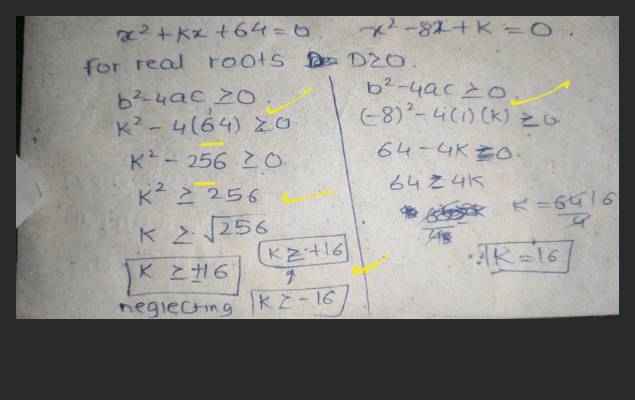 x² + Kx + 64 = 0
x² - 8x + K = 0.
for real roots D ≥ 0.
b² - 4ac ≥ 0.
K² - 4(64) ≥ 0
K² - 256 ≥ 0.
K² ≥ 256
K ≥ √256
K ≥ ±16
K ≥ +16
neglecting
K ≥ -16
b² - 4ac ≥ 0.
(-8)² - 4(1)(K) ≥ 0
64 - 4K ≥ 0.
64 ≥ 4K
K = 64/4 16
∴ K = 16